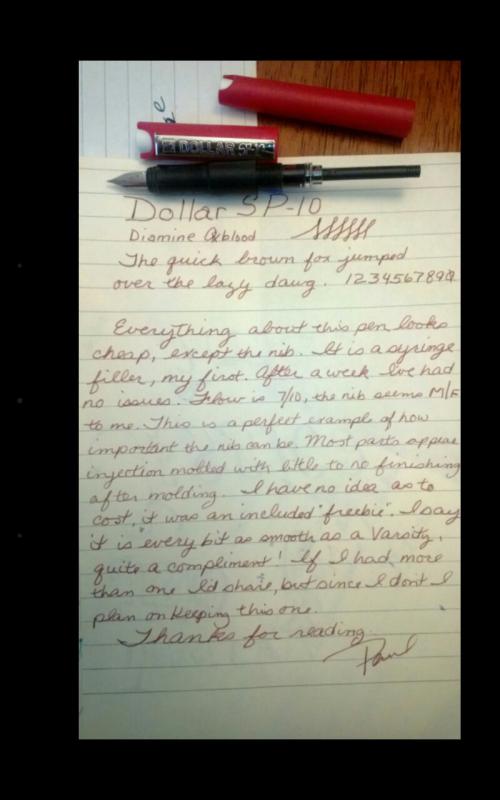 DOLLAR SP-10
Dollar SP-10
Diamine Oxblood
The quick brown fox jumped
over the lazy dawg. 1234567890
Everything about this pen looks
cheap, except the nib. It is a syringe
filler, my first. After a week Ive had
no issues. Flow is 7/10, the nib seems M/F
to me. This is a perfect example of how
important the nib can be. Most parts appear
injection molded with little to no finishing
after molding. I have no idea as to
cost, it was an included "freebie". I say
it is every bit as smooth as a Varsity,
quite a compliment! If I had more
than one Id share, but since I dont I
plan on keeping this one.
Thanks for reading.
Paul